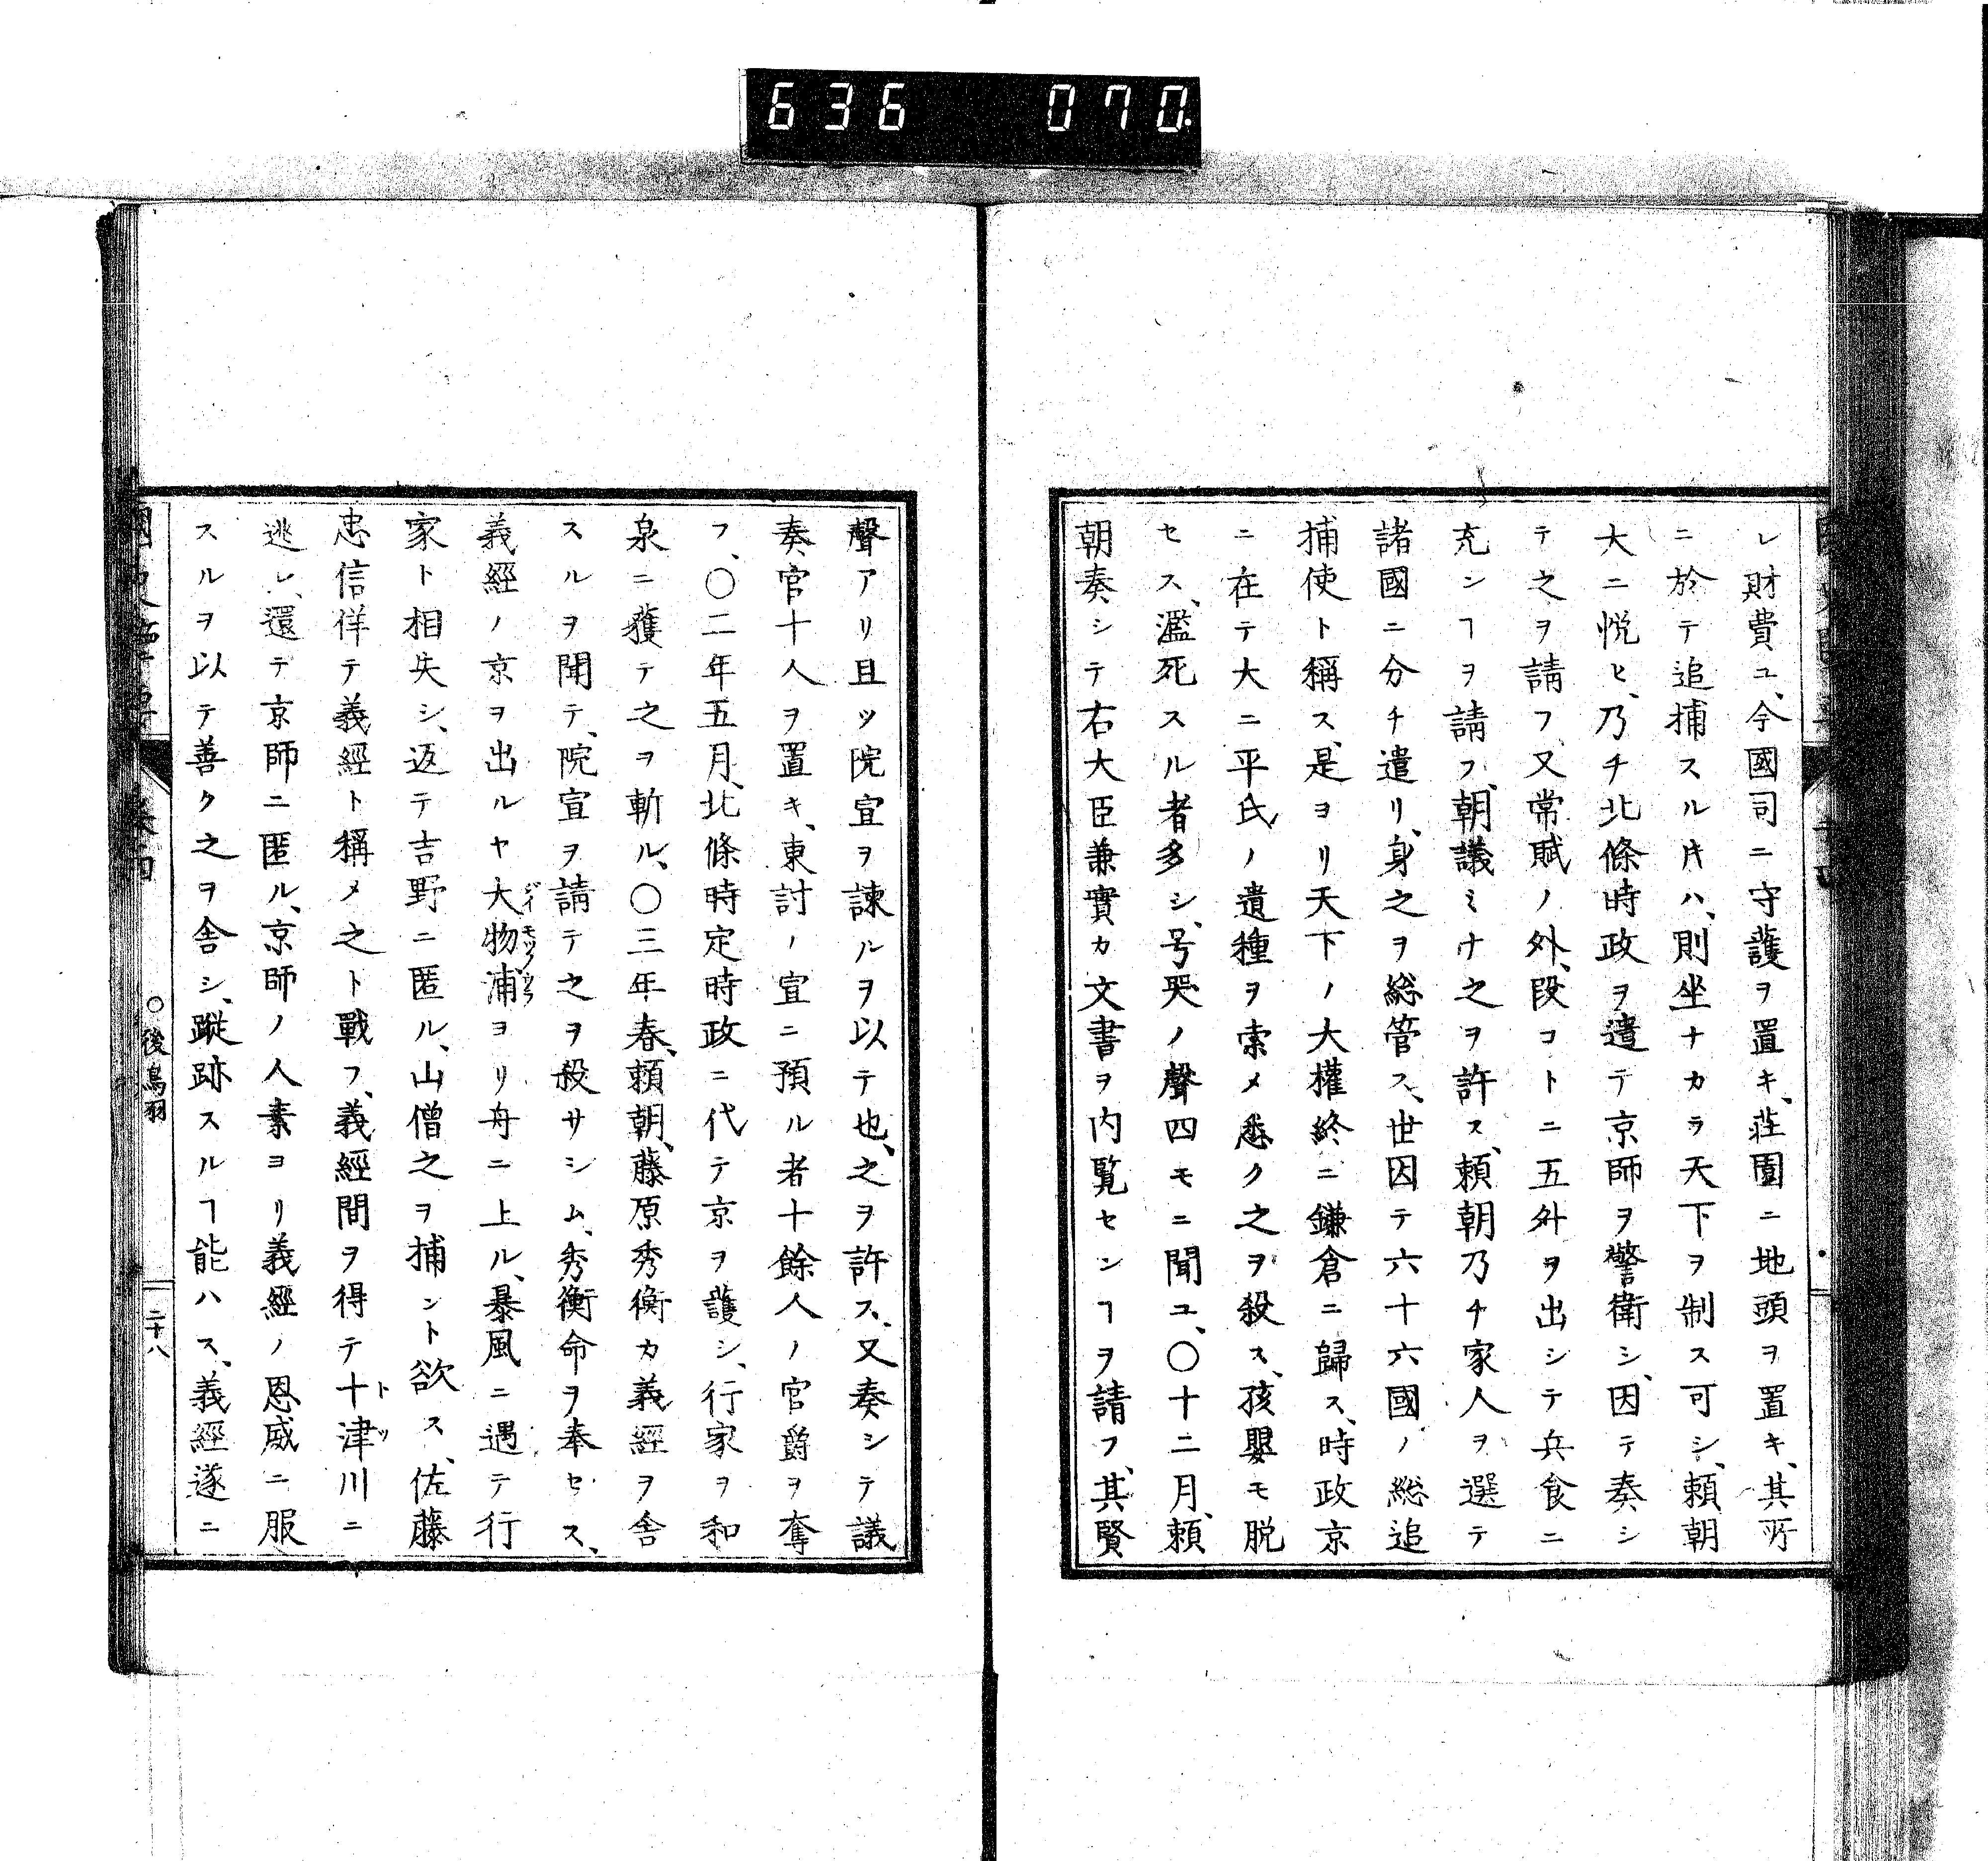 636 070
レ財費ユ、今國司ニ守護ヲ置キ、荘園ニ地頭ヲ置キ、其所
ニ於テ追捕スル𪜈ハ、則坐ナカラ天下ヲ制ス可シ、頼朝
大ニ悦ヒ、乃チ北條時政ヲ遣テ京師ヲ警衛シ、因テ奏シ
テ之ヲ請フ、又常賦ノ外、段コトニ五升ヲ出シテ兵食ニ
充ンヿヲ請フ、朝議ミナ之ヲ許ス、頼朝乃チ家人ヲ選テ
諸國ニ分チ遣リ、身之ヲ総管ス、世因テ六十六國ノ総追
捕使ト稱ス、是ヨリ天下ノ大權終ニ鎌倉ニ歸ス、時政京
ニ在テ大ニ平氏ノ遺種ヲ索メ悉ク之ヲ殺ス、孩嬰モ脱
セス、濫死スル者多シ、号哭ノ聲四モニ聞ユ、〇十二月、頼
朝奏シテ右大臣兼實カ文書ヲ内覧センヿヲ請フ、其賢
聲アリ且ツ院宣ヲ諫ルヲ以テ也、之ヲ許ス、又奏シテ議
奏官十人ヲ置キ、東討ノ宣ニ預ル者十餘人ノ官爵ヲ奪
フ、〇二年五月、北條時定時政ニ代テ京ヲ護シ、行家ヲ和
泉ニ獲テ之ヲ斬ル、〇三年春、頼朝、藤原秀衡カ義經ヲ舎
スルヲ聞テ、院宣ヲ請テ之ヲ殺サシム、秀衡命ヲ奉セス、
義經ノ京ヲ出ルヤ大物浦ヨリ舟ニ上ル、暴風ニ遇テ行
家ト相失シ、返テ吉野ニ匿ル、山僧之ヲ捕ント欲ス、佐藤
忠信佯テ義經ト稱メ之ト戰フ、義經間ヲ得テ十津川ニ
逃レ、還テ京師ニ匿ル、京師ノ人素ヨリ義經ノ恩威ニ服
スルヲ以テ善ク之ヲ舎シ、蹤跡スルヿ能ハス、義經遂ニ
巻四 〇後鳥羽 二十八